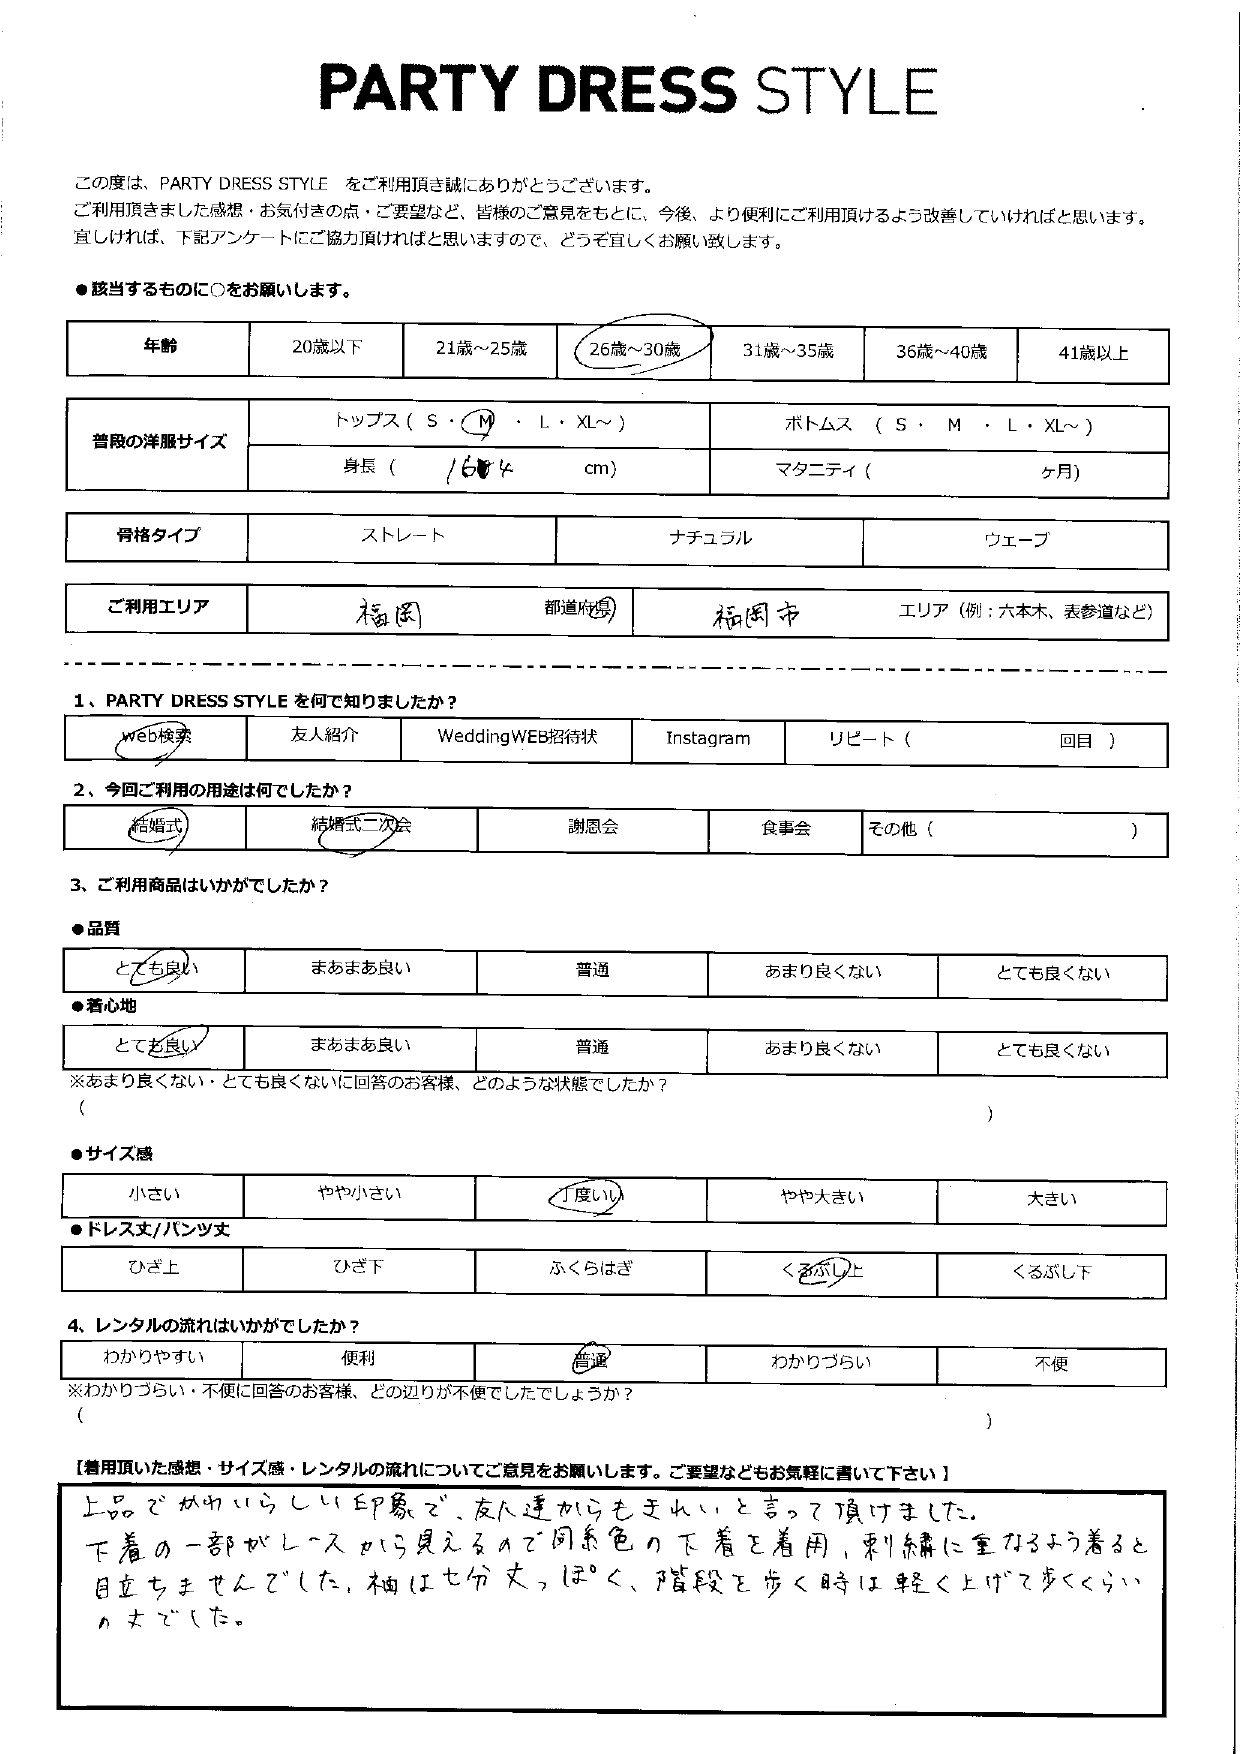 PARTY DRESS STYLE
この度は、PARTY DRESS STYLE をご利用頂き誠にありがとうございます。
ご利用頂きました感想・お気付きの点・ご要望など、皆様のご意見をもとに、今後、より便利にご利用頂けるよう改善していければと思います。
宜しければ、下記アンケートにご協力頂ければと思いますので、どうぞ宜しくお願い致します。
●該当するものに○をお願いします。
年齢 20歳以下 21歳～25歳 26歳～30歳 31歳～35歳 36歳～40歳 41歳以上
普段の洋服サイズ トップス ( S ・ M ・ L ・ XL～ ) ボトムス ( S ・ M ・ L ・ XL～ )
身長 ( 164 cm) マタニティ ( ヶ月)
骨格タイプ ストレート ナチュラル ウェーブ
ご利用エリア 福岡 都道府県 福岡市 エリア（例：六本木、表参道など）
1、PARTY DRESS STYLE を何で知りましたか？
web検索 友人紹介 WeddingWEB招待状 Instagram リピート ( 回目 )
2、今回ご利用の用途は何でしたか？
結婚式 結婚式二次会 謝恩会 食事会 その他 ( )
3、ご利用商品はいかがでしたか？
●品質
とても良い まあまあ良い 普通 あまり良くない とても良くない
●着心地
とても良い まあまあ良い 普通 あまり良くない とても良くない
※あまり良くない・とても良くないに回答のお客様、どのような状態でしたか？
( )
●サイズ感
小さい やや小さい 丁度いい やや大きい 大きい
●ドレス丈/パンツ丈
ひざ上 ひざ下 ふくらはぎ くるぶし上 くるぶし下
4、レンタルの流れはいかがでしたか？
わかりやすい 便利 普通 わかりづらい 不便
※わかりづらい・不便に回答のお客様、どの辺りが不便でしたでしょうか？
( )
【着用頂いた感想・サイズ感・レンタルの流れについてご意見をお願いします。ご要望などもお気軽に書いて下さい】
上品でかわいらしい印象で、友人達からもきれいと言って頂けました。
下着の一部がレースから見えるので同系色の下着を着用、刺繍に重なるよう着ると
目立ちませんでした。袖は七分丈っぽく、階段を歩く時は軽く上げて歩くくらい
の丈でした。